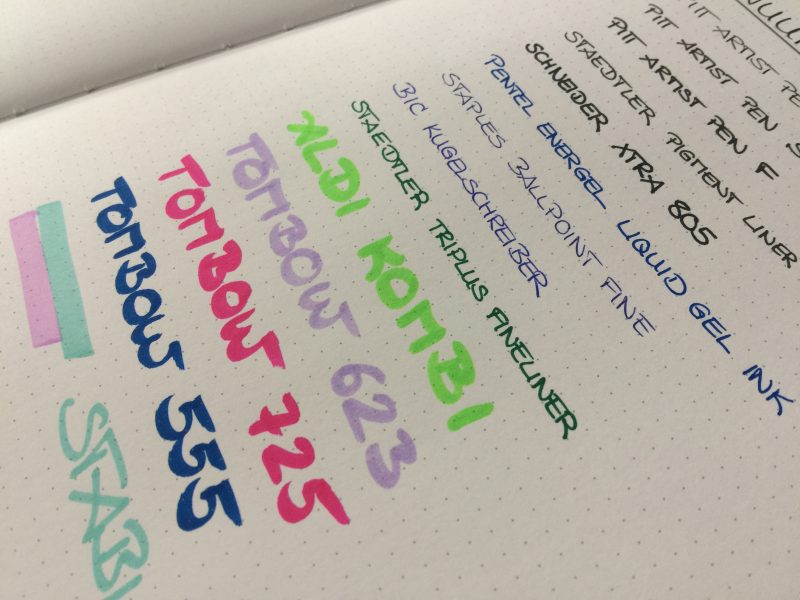 PITT ARTIST PE
PITT ARTIST PEN S
PITT ARTIST PEN F
STAEDTLER PIGMENT LINER
SCHNEIDER XTRA 805
PENTEL ENERGEL LIQUID GEL INK
STAPLES BALLPOINT FINE
BIC KUGELSCHREIBER
STAEDTLER TRIPLUS FINELINER
ALDI KOMBI
TOMBOW 623
TOMBOW 725
TOMBOW 555
STABI